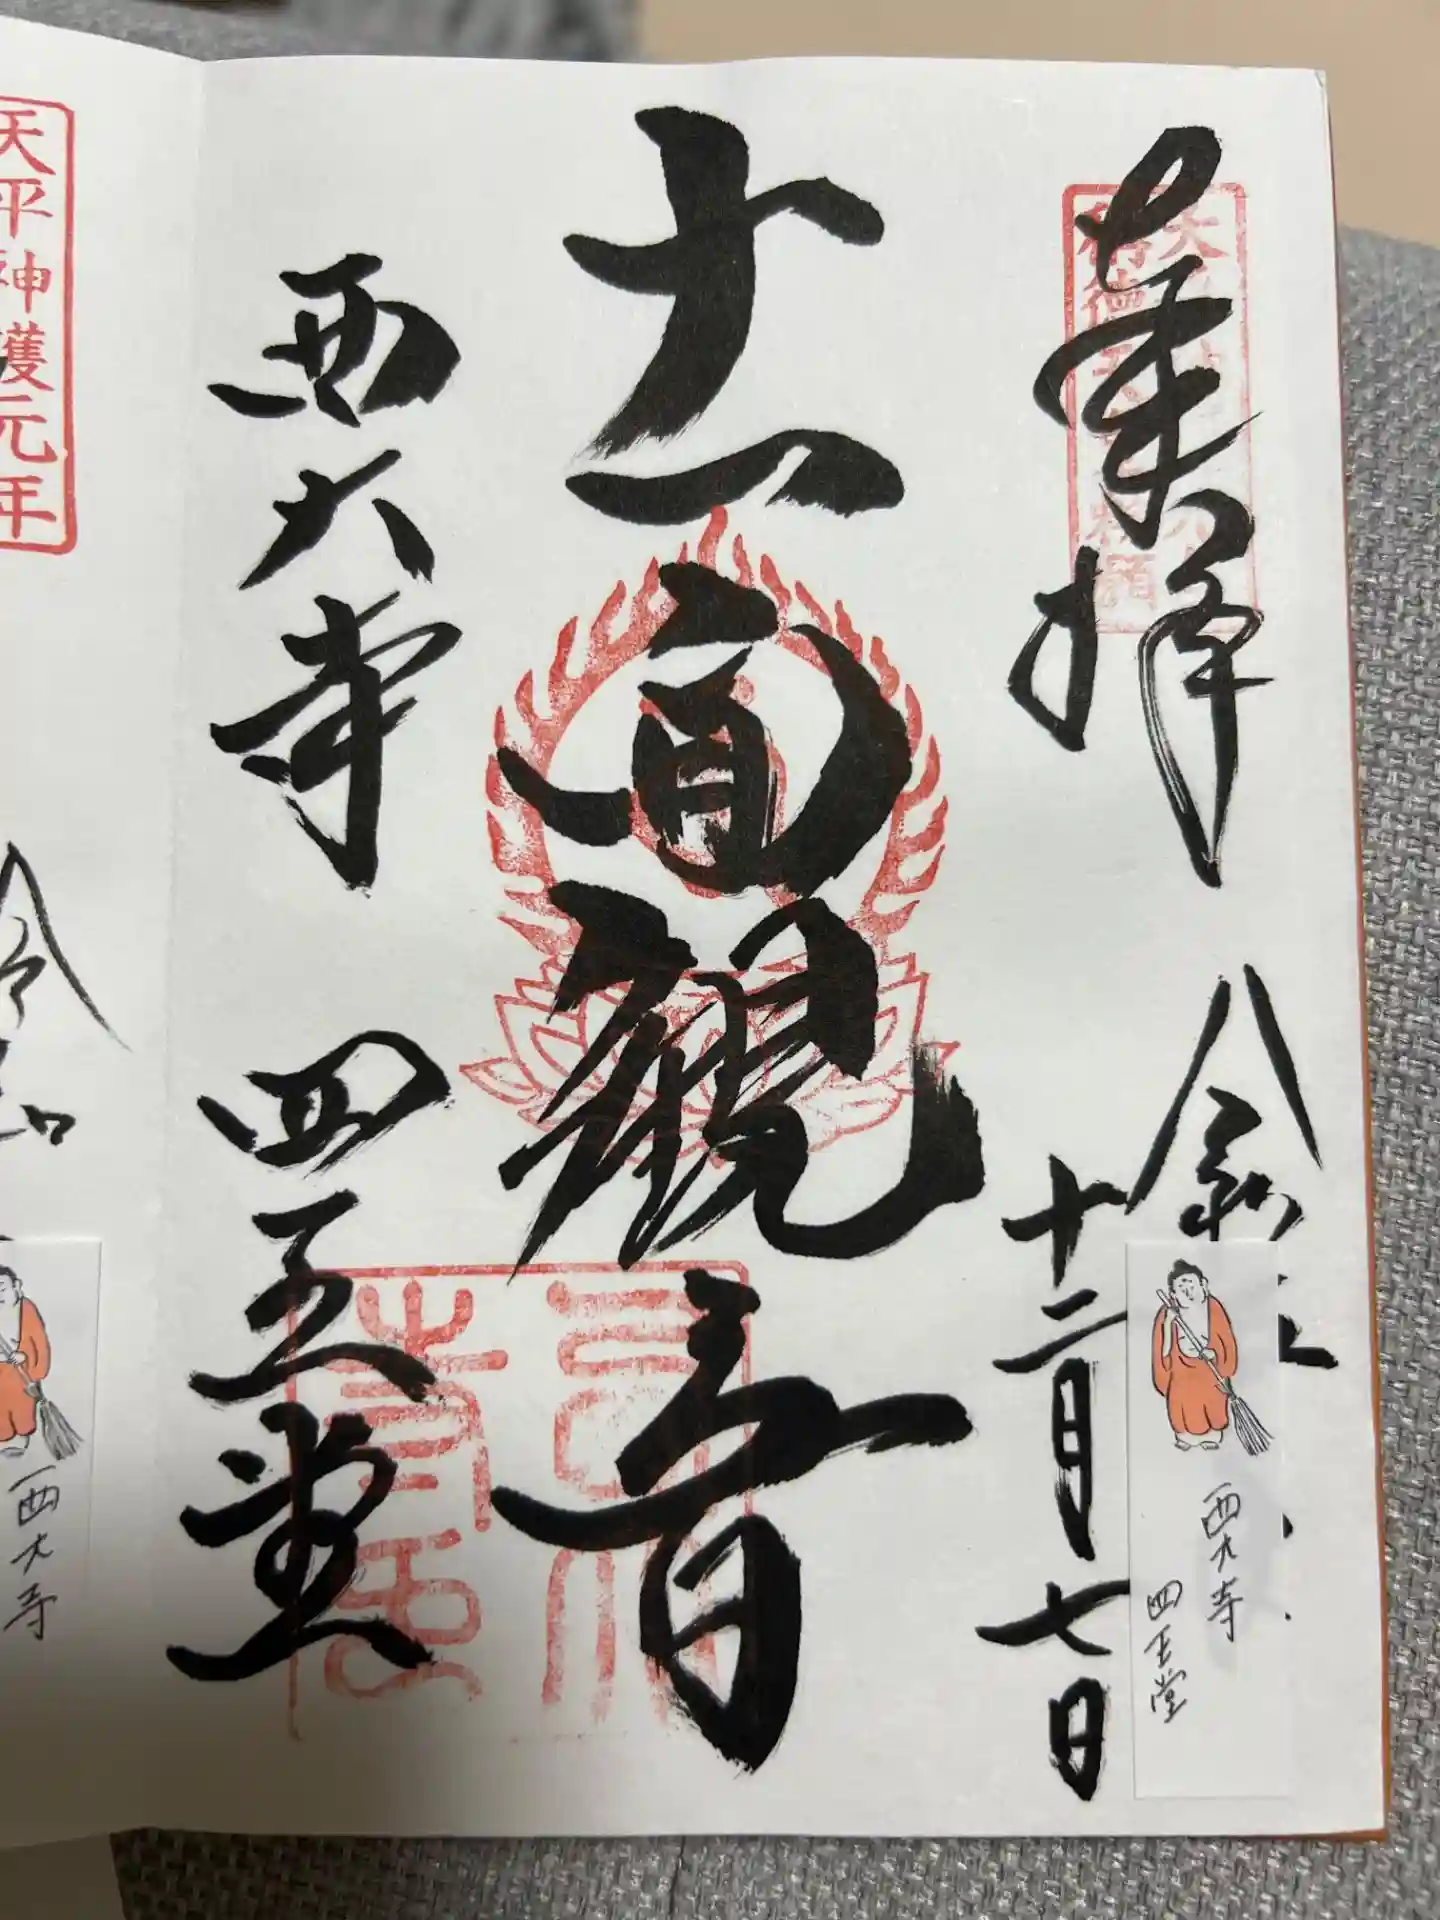 奉拝
令和
十二月七日
十一面観音
西大寺　四王堂
西大寺
四王堂
天平神護元年
令和
西大寺